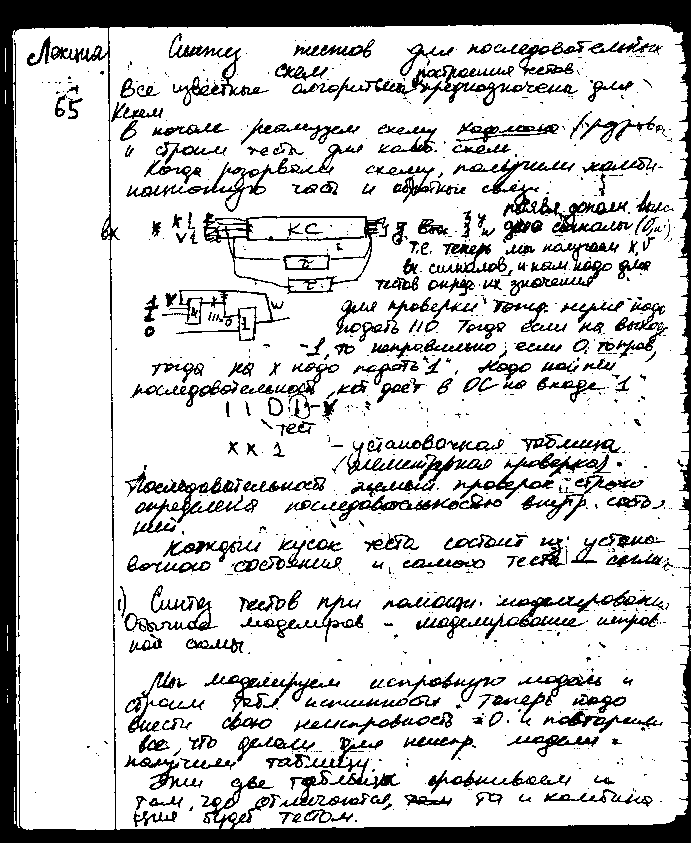 Лекция
65
Синтез тестов для последовательных
схем
Все известные алгоритмы построения тестов предназначена для
Ксхем
В начале реализуем схему
и строим теста для комб схем.
Когда разорвали схему, получили комби-
национную часть и обратные связи.
вх x x 1 КС
v 1
появл дополн
два сигналы
τ
τ
т.е. теперь мы получаем x, v
вх. сигналов, и нам надо для
тестов опред их значения
1
1
0
w
1
для проверки тожд. нуля надо
подать 110. Тогда если на выходе
-1, то неправильно, если 0,
тогда на x надо подать "1". Надо найти
последовательность, кот даёт в ОС на входе "1"
1 1 0 1 - v
тест
x x 1 - установочная таблица
(элементарная проверка).
Последовательность проверок строго
определена последовательностью внутр. состо-
ний
Каждый кусок теста состоит из устано-
вочного состояния и самого теста
1) Синтез тестов при помощи моделирования
Обычное моделиров - моделирование исправ-
ной схемы.
Мы моделируем исправную модель и
строим табл истинности. Теперь надо
внести свою неисправность ≡0. и повторяем
все, что делали для неиспр. модели
получим таблицу.
Эти две таблицы сравниваем и
там, где отличаются, та и комбина-
ция будет тестом.